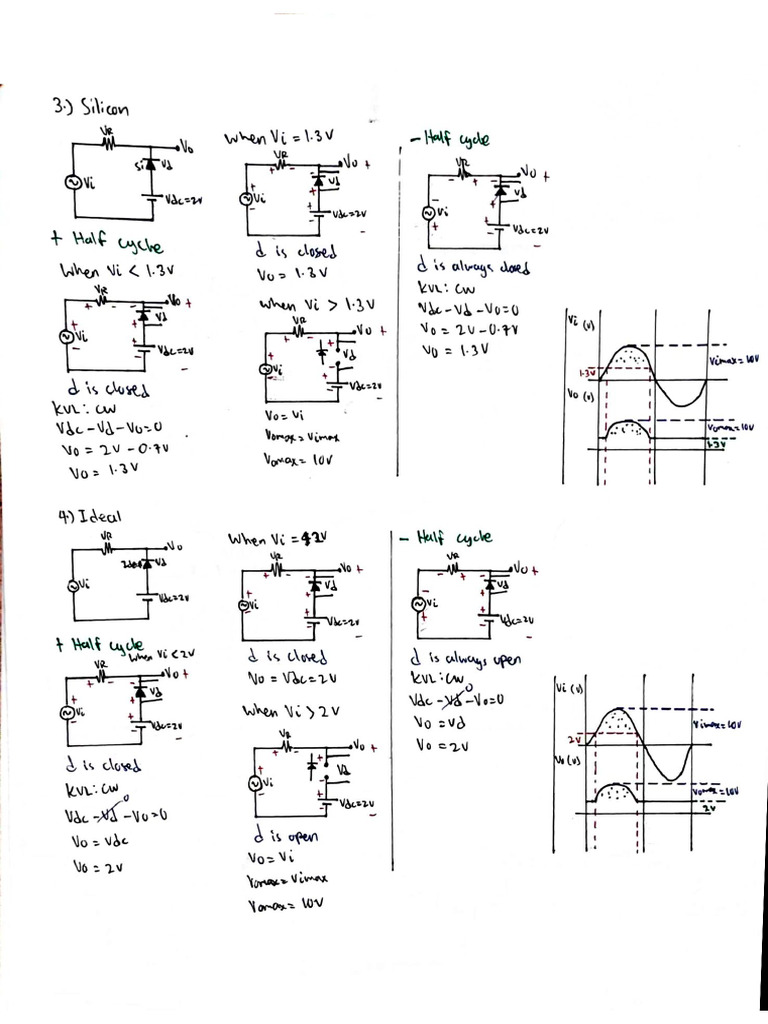 3.) Silicon
VR
Vo
Si
Vd
Vi
Vdc=2V
+ Half cycle
When Vi < 1.3V
VR
Vo +
Vd
Vi
Vdc=2V
d is closed
KVL: CW
Vdc-Vd-Vo=0
Vo = 2V-0.7V
Vo = 1.3V
When Vi = 1.3V
VR
Vo +
Vd
Vi
Vdc=2V
d is closed
Vo = 1.3V
When Vi > 1.3V
VR
Vo +
Vd
Vi
Vdc=2V
Vo=Vi
Vomax=Vimax
Vomax= 10V
- Half cycle
VR
Vo +
Vd
Vi
Vdc=2V
d is always closed
KVL: CW
Vdc-Vd-Vo=0
Vo = 2V-0.7V
Vo = 1.3V
Vi (v)
Vimax=10V
1.3V
Vo (v)
Vomax=10V
1.3V
4.) Ideal
VR
Vo
Ideal
Vd
Vi
Vdc=2V
+ Half cycle
When Vi < 2V
VR
Vo +
Vd
Vi
Vdc=2V
d is closed
KVL: CW
0
Vdc-Vd-Vo=0
Vo = Vdc
Vo = 2V
When Vi = 2V
VR
Vo +
Vd
Vi
Vdc=2V
d is closed
Vo = Vdc = 2V
When Vi > 2V
VR
Vo +
Vd
Vi
Vdc=2V
d is open
Vo = Vi
Vomax= Vimax
Vomax= 10V
- Half cycle
VR
Vo +
Vd
Vi
Vdc=2V
d is always open
KVL: CW
0
Vdc-Vd-Vo=0
Vo = Vd
Vo = 2V
Vi (v)
Vimax=10V
2V
Vo (v)
Vomax=10V
2V